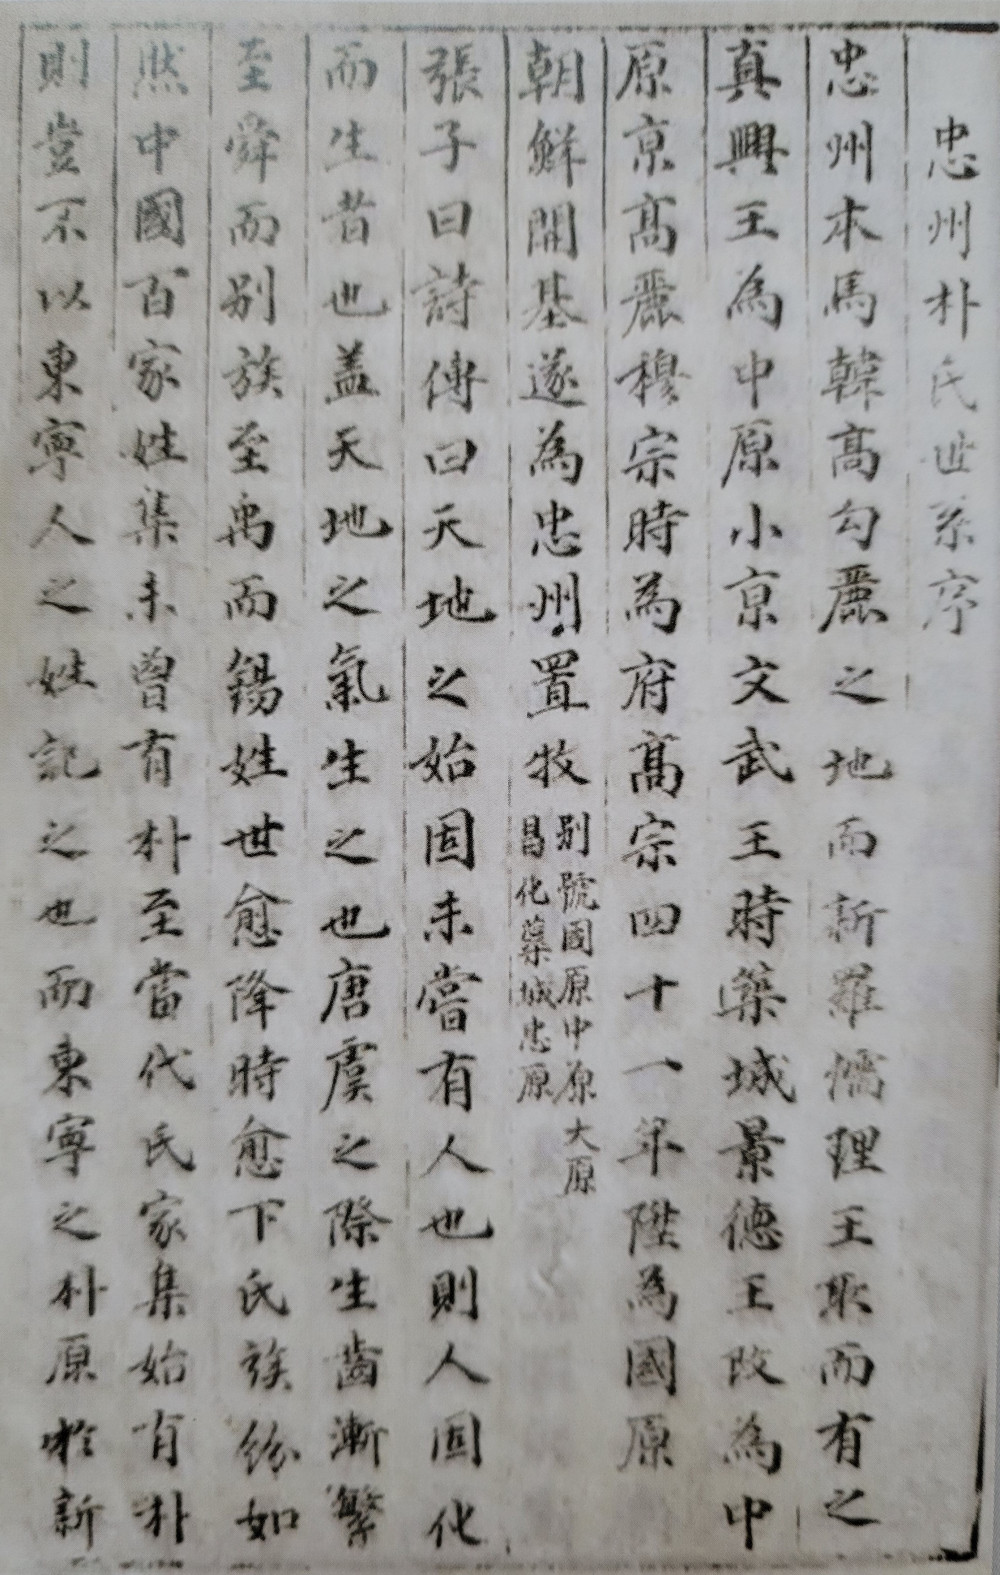 忠州朴氏世系序
忠州本馬韓高勾麗之地而新羅儒理王取而有之
真興王為中原小亰文武王時築城景德王改為中
原亰高麗穆宗時為府高宗四十一年陞為國原
朝鮮開基遂為忠州置牧
別號國原中原大原
昌化蘂城忠原
張子曰詩傳曰天地之始固未嘗有人也則人固化
而生者也盖天地之氣生之也唐虞之際生齒漸繁
至舜而别族至禹而錫姓世愈降時愈下氏族紛如
然中國百家姓集未曾有朴至當代氏家集始有朴
則豈不以東寧人之姓記之也而東寧之朴原於新